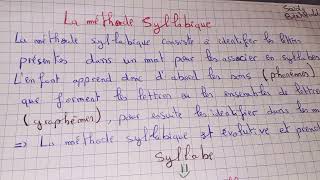 La méthode Syllabique
La méthode syllabique consiste à identifier les lettres
présentes dans un mot pour les associer en syllabes
L'enfant apprend donc d'abord les sons (phonèmes)
que forment les lettres ou les ensembles de lettres
(graphèmes), pour ensuite les identifier dans les m
⇒ La méthode syllabique est évolutive et prend
Syllabe